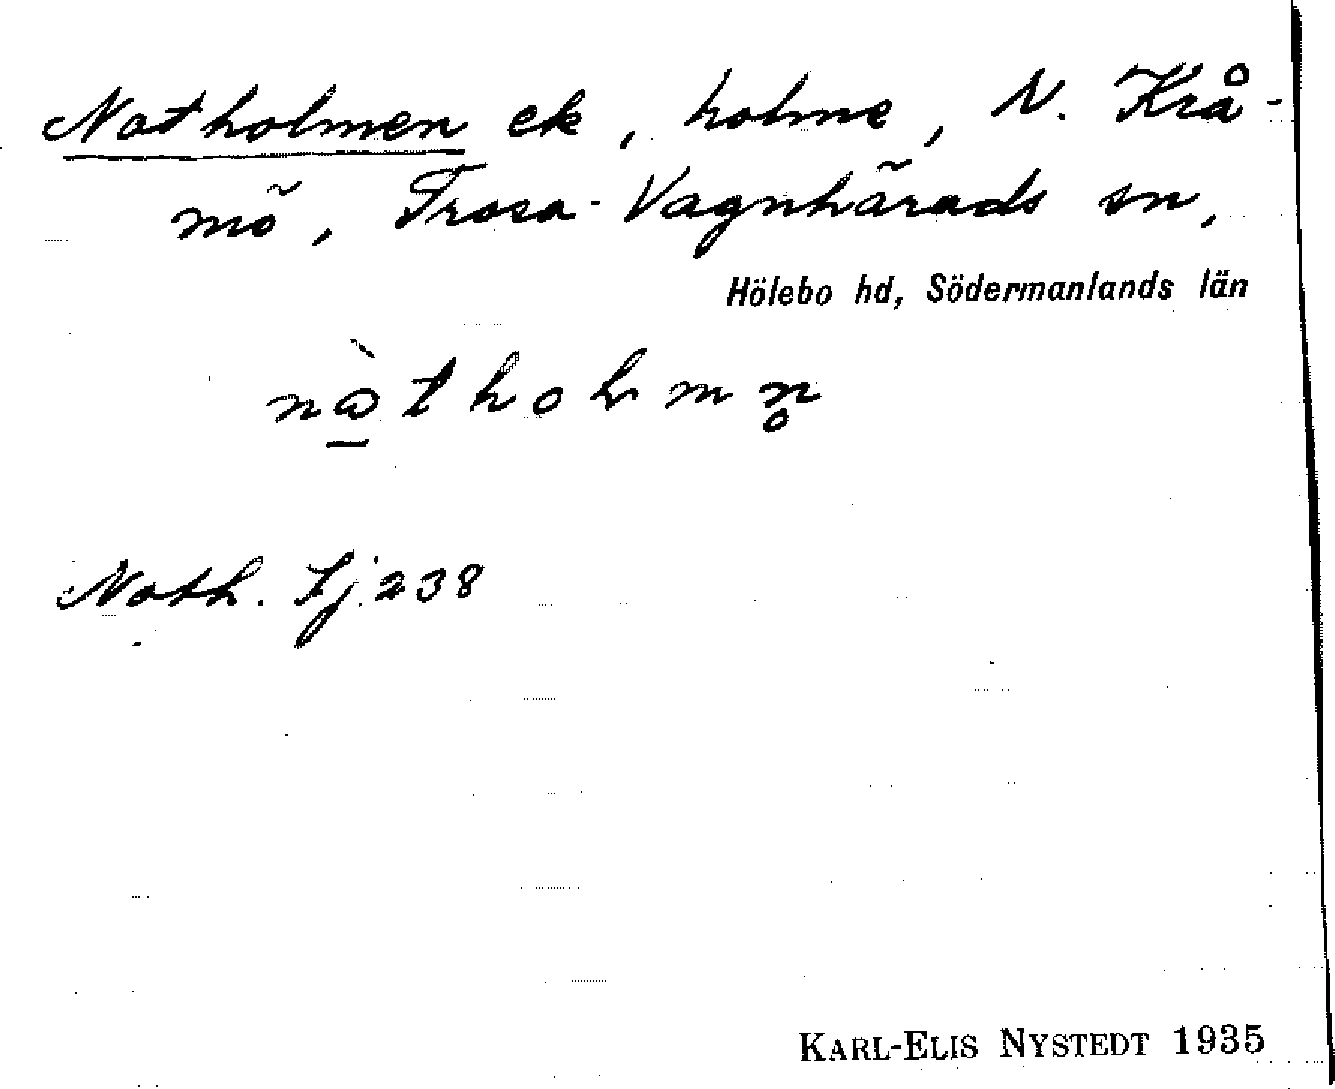 Natholmen ek, holme, N. Krå-
mö, Trosa-Vagnhärads sn,
Hölebo hd, Södermanlands län
nàthoḷmn̥
Nath. Sj. 238
KARL-ELIS NYSTEDT 1935